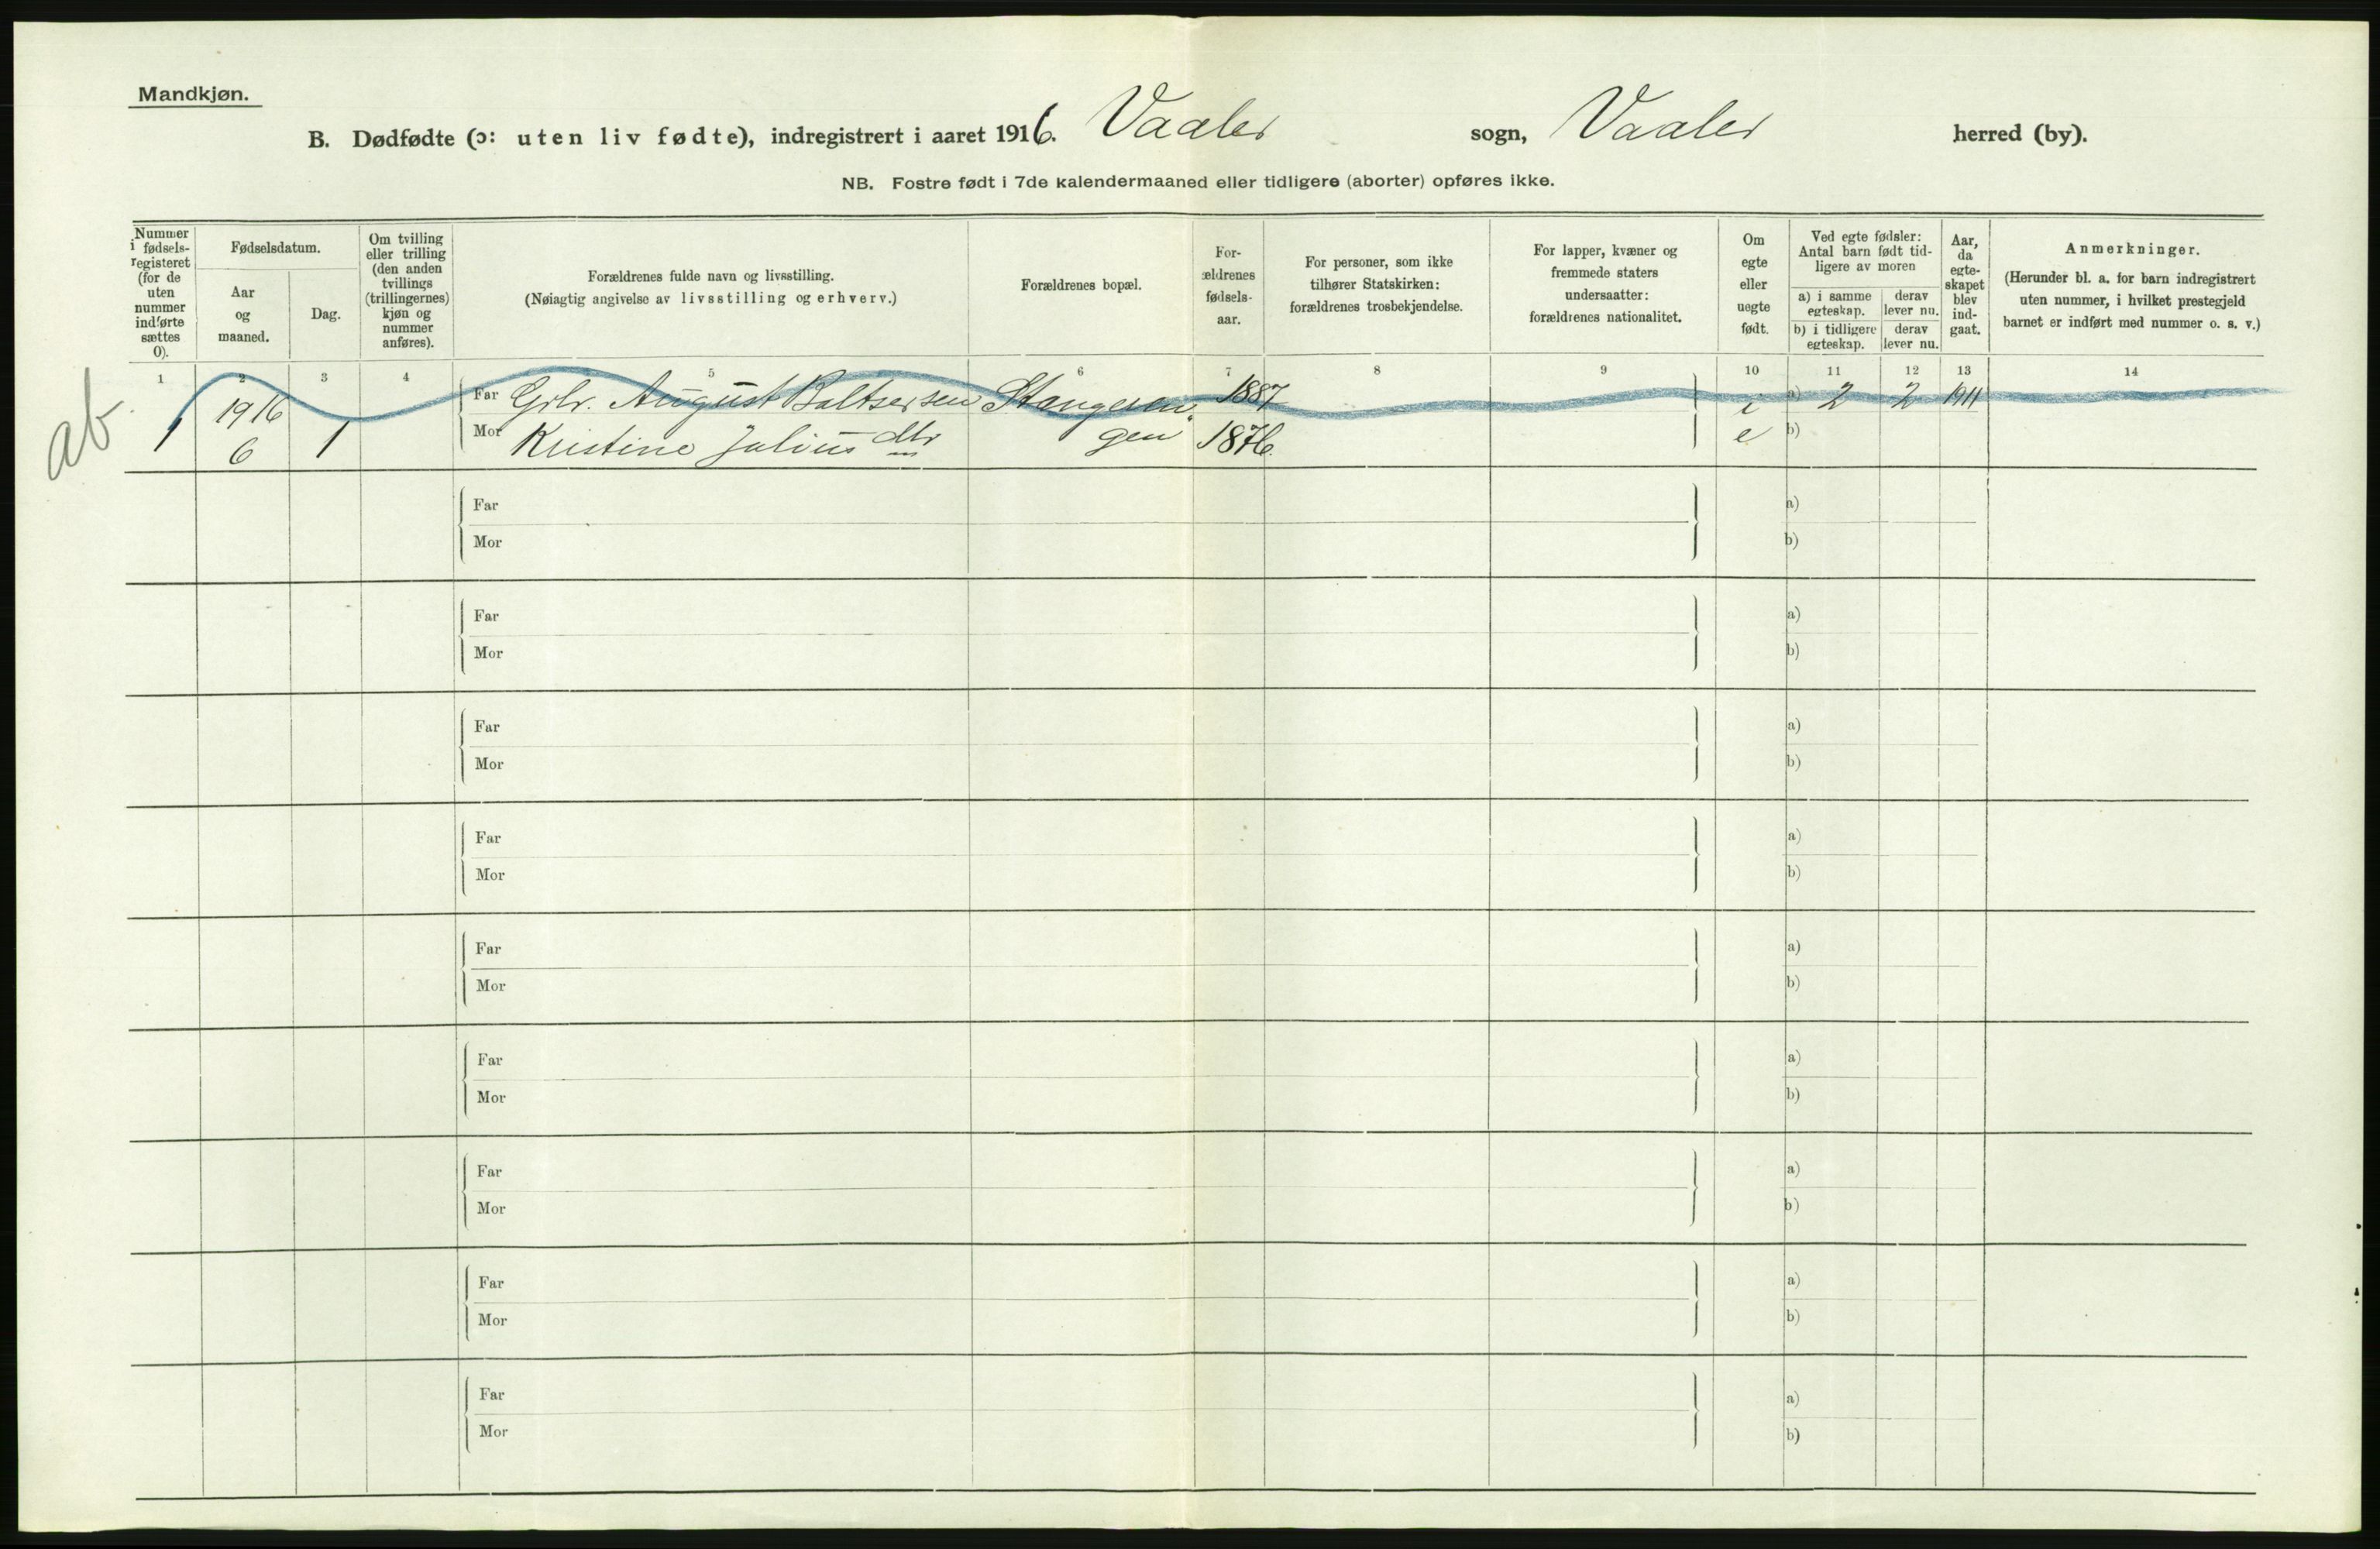 Mandkjøn.
B. Dødfødte (ɔ: uten liv fødte), indregistrert i aaret 1916. Vaaler sogn, Vaaler herred (by).
NB. Fostre født i 7de kalendermaaned eller tidligere (aborter) opføres ikke.
Nummer
i fødsels-
registeret
(for de
uten
nummer
indførte
sættes
0).
Fødselsdatum.
Aar
og
maaned.
Dag.
Om tvilling
eller trilling
(den anden
tvillings
(trillingernes)
kjøn og
nummer
anføres).
Forældrenes fulde navn og livsstilling.
(Nøiagtig angivelse av livsstilling og erhverv.)
Forældrenes bopæl.
For-
ældrenes
fødsels-
aar.
For personer, som ikke
tilhører Statskirken:
forældrenes trosbekjendelse.
For lapper, kvæner og
fremmede staters
undersaatter:
forældrenes nationalitet.
Om
egte
eller
uegte
født.
Ved egte fødsler:
Antal barn født tid-
ligere av moren
a) i samme
egteskap.
derav
lever nu.
b) i tidligere
egteskap.
derav
lever nu.
Aar,
da
egte-
skapet
blev
ind-
gaat.
Anmerkninger.
(Herunder bl. a. for barn indregistrert
uten nummer, i hvilket prestegjeld
barnet er indført med nummer o. s. v.)
1 2 3 4 5 6 7 8 9 10 11 12 13 14
ab.
1 1916 1 Far Grbr. August Baltsersen 1887 i a) 2 2 1911
6 Mor Kristine Julius dtr gen 1876 e b)
Far a)
Mor b)
Far a)
Mor b)
Far a)
Mor b)
Far a)
Mor b)
Far a)
Mor b)
Far a)
Mor b)
Far a)
Mor b)
Far a)
Mor b)
Far a)
Mor b)